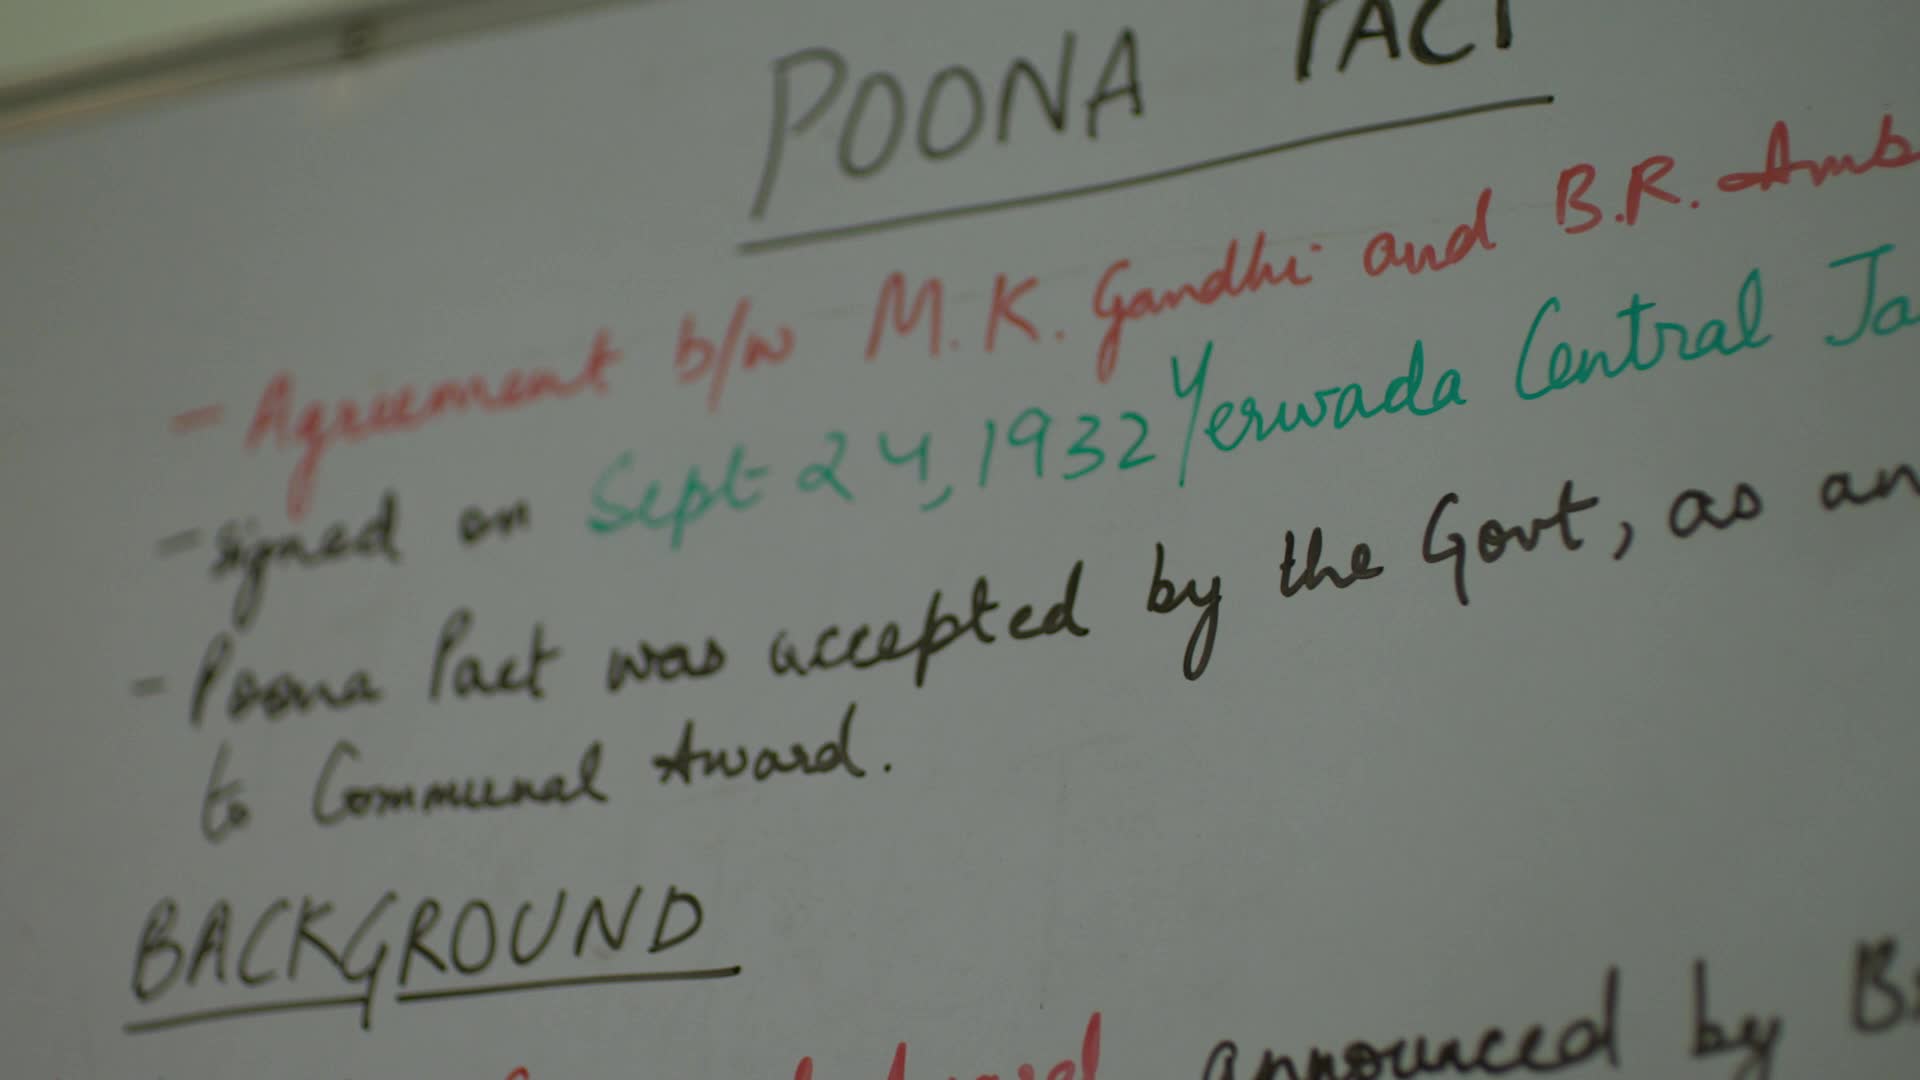 POONA PACT
- Agreement b/w M.K. Gandhi and B.R. Amb
- Signed on Sept 24, 1932 Yerwada Central Ja
- Poona Pact was accepted by the Govt, as an
to Communal Award.
BACKGROUND
announced by